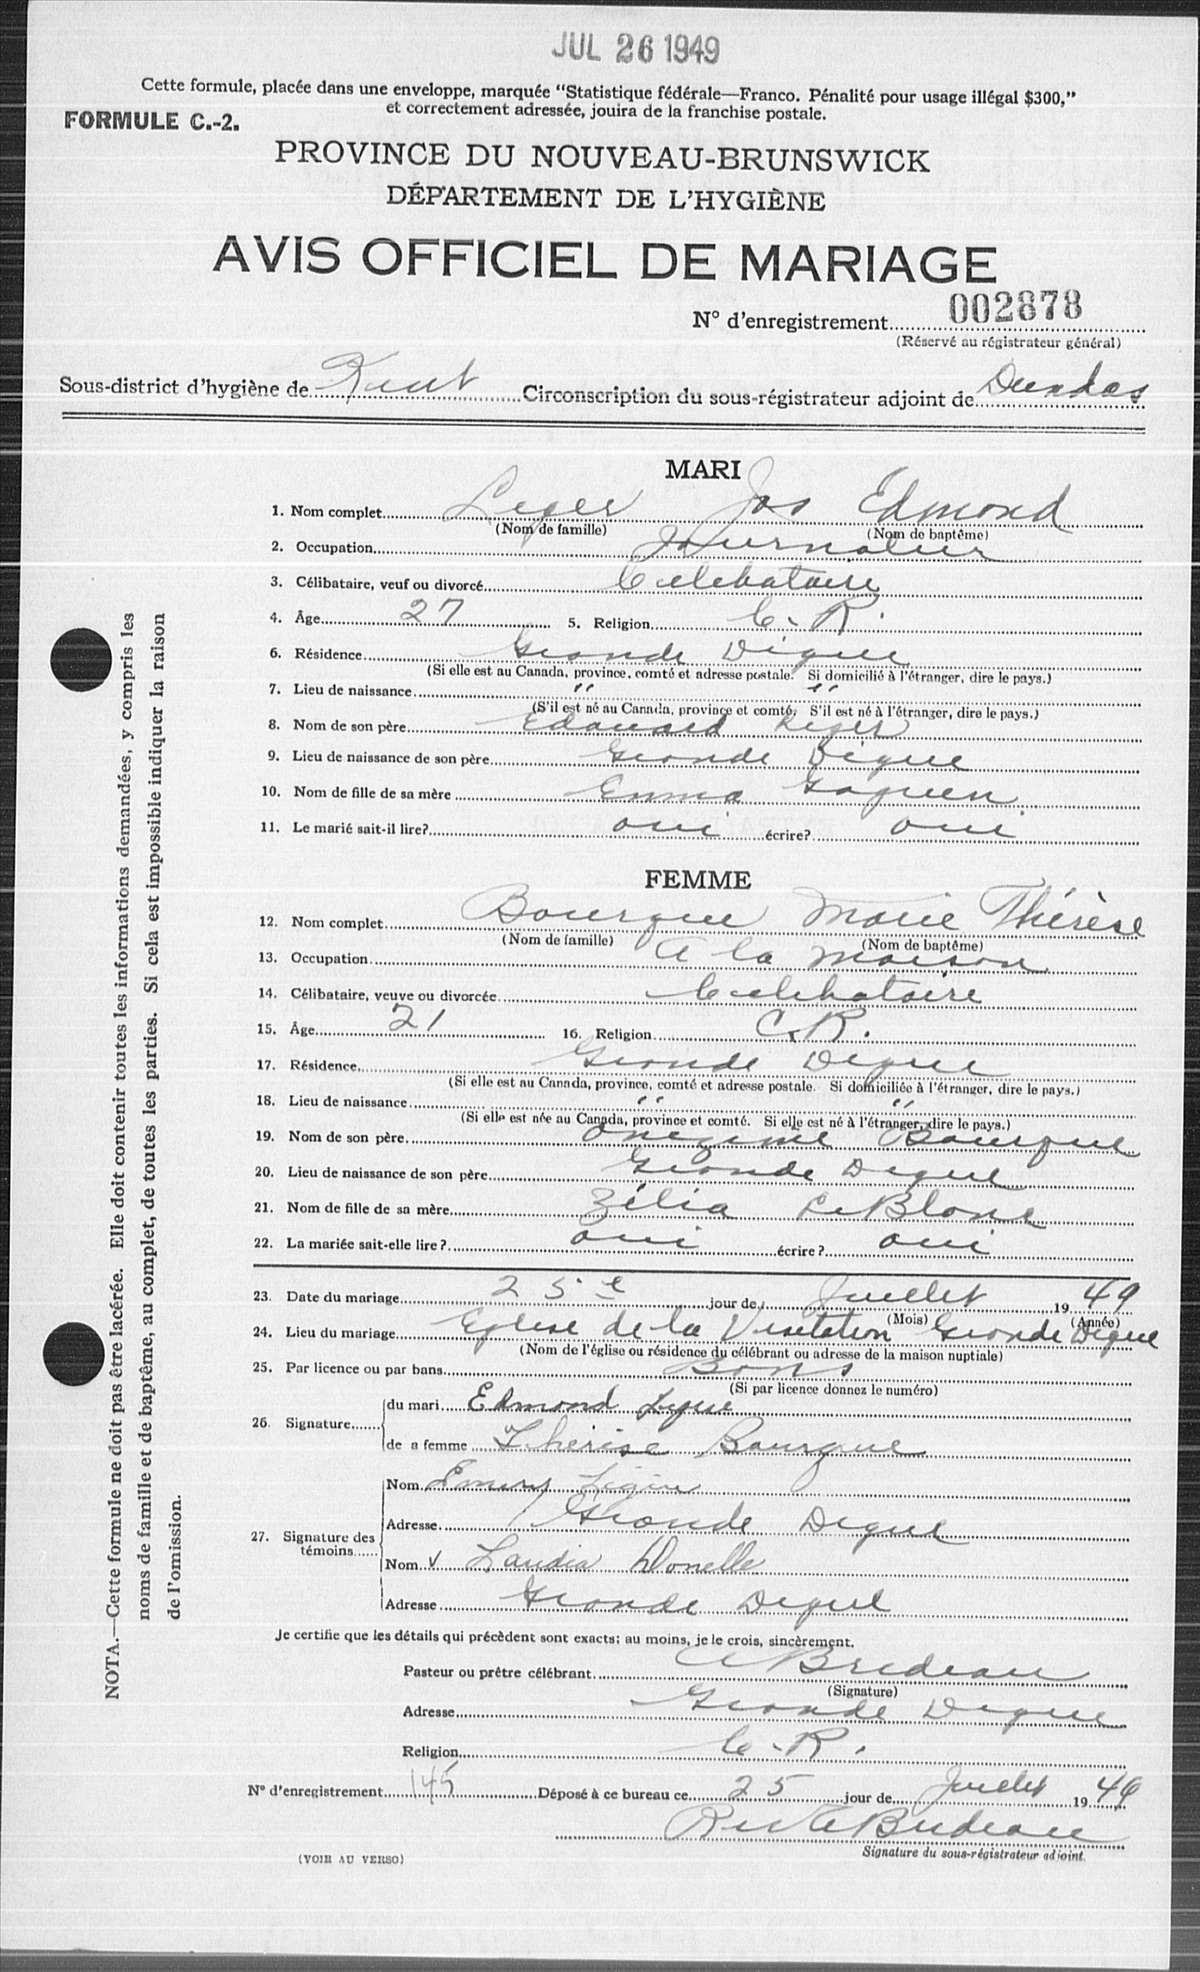 JUL 26 1949
Cette formule, placée dans une enveloppe, marquée "Statistique fédérale—Franco. Pénalité pour usage illégal $300,"
et correctement adressée, jouira de la franchise postale.
FORMULE C.-2.
PROVINCE DU NOUVEAU-BRUNSWICK
DÉPARTEMENT DE L'HYGIÈNE
AVIS OFFICIEL DE MARIAGE
N° d'enregistrement 002878
(Réservé au régistrateur général)
Sous-district d'hygiène de Kent Circonscription du sous-régistrateur adjoint de Dundas
MARI
1. Nom complet Leger Jos Edmond
(Nom de famille) (Nom de baptême)
2. Occupation Journalier
3. Célibataire, veuf ou divorcé Celebataire
4. Âge 27 5. Religion C. R.
6. Résidence Grande Digue
(Si elle est au Canada, province, comté et adresse postale. Si domicilié à l'étranger, dire le pays.)
7. Lieu de naissance " "
(S'il est né au Canada, province et comté. S'il est né à l'étranger, dire le pays.)
8. Nom de son père Edouard Leger
9. Lieu de naissance de son père Grande Digue
10. Nom de fille de sa mère Emma Goguen
11. Le marié sait-il lire? oui écrire? oui
FEMME
12. Nom complet Bourque Marie Thérèse
(Nom de famille) (Nom de baptême)
13. Occupation A la maison
14. Célibataire, veuve ou divorcée Celebataire
15. Âge 21 16. Religion C. R.
17. Résidence Grande Digue
(Si elle est au Canada, province, comté et adresse postale. Si domiciliée à l'étranger, dire le pays.)
18. Lieu de naissance " "
(Si elle est née au Canada, province et comté. Si elle est né à l'étranger, dire le pays.)
19. Nom de son père Onezime Bourque
20. Lieu de naissance de son père Grande Digue
21. Nom de fille de sa mère Zélia LeBlanc
22. La mariée sait-elle lire? oui écrire? oui
23. Date du mariage 25e jour de Juillet 1949
(Mois) (Année)
24. Lieu du mariage Eglise de la Visitation Grande Digue
(Nom de l'église ou résidence du célébrant ou adresse de la maison nuptiale)
25. Par licence ou par bans Bans
(Si par licence donnez le numéro)
26. Signature
du mari Edmond
de a femme Thérèse Bourque
27. Signature des témoins
Nom Emery
Adresse Grande Digue
Nom
Adresse Grande Digue
Je certifie que les détails qui précèdent sont exacts; au moins, je le crois, sincèrement.
Pasteur ou prêtre célébrant
(Signature)
Adresse Grande Digue
Religion C. R.
N° d'enregistrement 145 Déposé à ce bureau ce 25 jour de Juillet 1949
Signature du sous-régistrateur adjoint.
(VOIR AU VERSO)
NOTA.—Cette formule ne doit pas être lacérée. Elle doit contenir toutes les informations demandées, y compris les
noms de famille et de baptême, au complet, de toutes les parties. Si cela est impossible indiquer la raison
de l'omission.